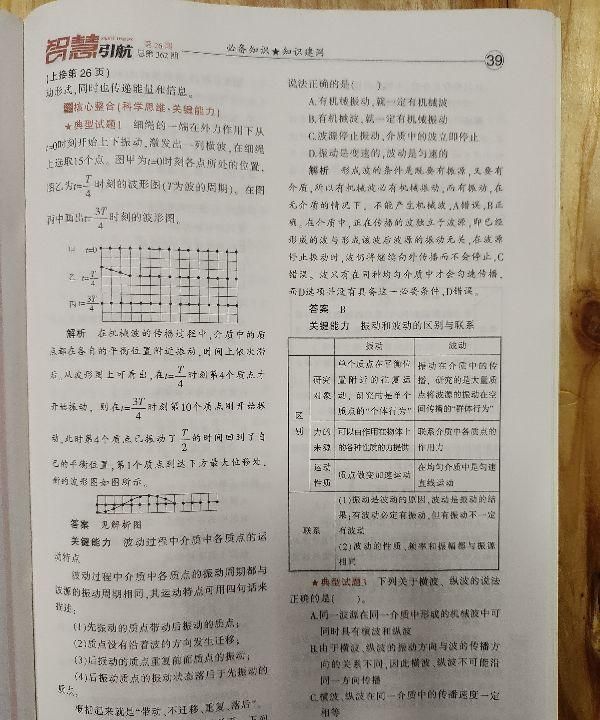 智慧引航
第26期
总第362期
必备知识★知识建网
39
(上接第26页)
动形式,同时也传递能量和信息。
核心整合(科学思维·关键能力)
★典型试题1 细绳的一端在外力作用下从
t=0时刻开始上下振动,激发出一列横波,在细绳
上选取15个点。图甲为t=0时刻各点所处的位置,
图乙为t=T/4时刻的波形图(T为波的周期)。在图
丙中画出t=3T/4时刻的波形图。
甲 t=0
乙 t=T/4
丙 t=3T/4
解析 在机械波的传播过程中,介质中的质
点都在各自的平衡位置附近振动,时间上依次滞
后。从波形图上可看出,在t=T/4时刻第4个质点为
开始振动。则在t=3T/4时刻第10个质点刚开始振
动,此时第4个质点已振动了T/2的时间回到了自
己的平衡位置,第1个质点到达下方最大位移处。
所的波形图如图所示。
答案 见解析图
关键能力 波动过程中介质中各质点的运
动特点
波动过程中介质中各质点的振动周期都与
波源的振动周期相同,其运动特点可用四句话来
描述:
(1)先振动的质点带动后振动的质点;
(2)质点没有沿着波的方向发生迁移;
(3)后振动的质点重复前面质点的振动;
(4)后振动质点的振动状态落后于先振动的
质点。
概括起来就是“带动、不迁移、重复、落后”。
说法正确的是( )。
A.有机械振动,就一定有机械波
B.有机械波,就一定有机械振动
C.波源停止振动,介质中的波立即停止
D.振动是变速的,波动是匀速的
解析 形成波的条件是既要有振源,又要有
介质,所以有机械波必有机械振动,而有振动,在
无介质的情况下,不能产生机械波,A错误,B正
确。在介质中,正在传播的波独立于波源,即已经
形成的波与形成该波后波源的振动无关,在波源
停止振动时,波仍将继续向外传播而不会停止,C
错误。波只有在同种均匀介质中才会匀速传播,
而D选项并没有具备这一必要条件,D错误。
答案 B
关键能力 振动和波动的区别与联系
振动 波动
区别
研究对象
单个质点在平衡位
置附近的往复运
动,研究的是单个
质点的“个体行为”
振动在介质中的传
播,研究的是大量质
点将波源的振动在空
间传播的“群体行为”
力的来源
可以由作用在物体上
的各种性质的力提供
联系介质中各质点的
作用力
运动性质
质点做变加速运动
在均匀介质中是匀速
直线运动
联系
(1)振动是波动的原因,波动是振动的结
果;有波动必定有振动,但有振动不一定
有波动
(2)波动的性质、频率和振幅都与振源
相同
★典型试题3 下列关于横波、纵波的说法
正确的是( )。
A.同一波源在同一介质中形成的机械波中可
同时具有横波和纵波
B.由于横波、纵波的振动方向与波的传播方
向的关系不同,因此横波、纵波不可能沿
同一方向传播
C.横波、纵波在同一介质中的传播速度一定
相等